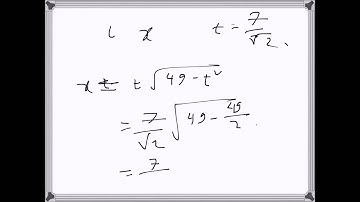 L x t = 7/√2.
x = t √(49 - t²)
= 7/√2 √(49 - 49/2).
= 7/